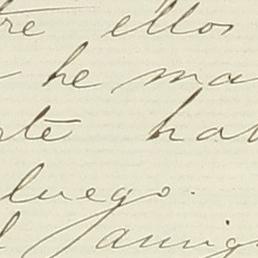 tre ellos
he ma
te ha
luego.
l amig